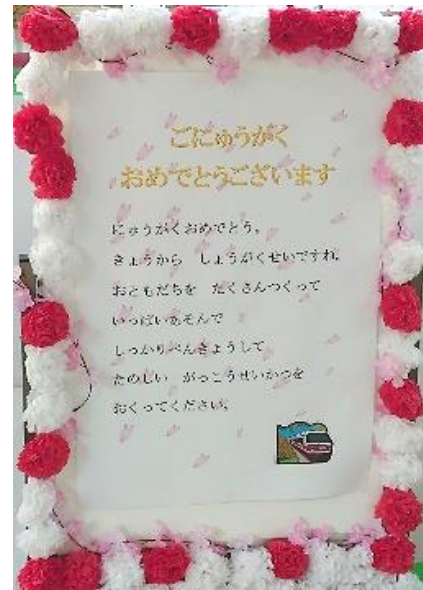 ごにゅうがく
おめでとうございます
にゅうがくおめでとう。
きょうから　しょうがくせいですね。
おともだちを　たくさんつくって
いっぱいあそんで
しっかりべんきょうして
たのしい　がっこうせいかつを
おくってください。